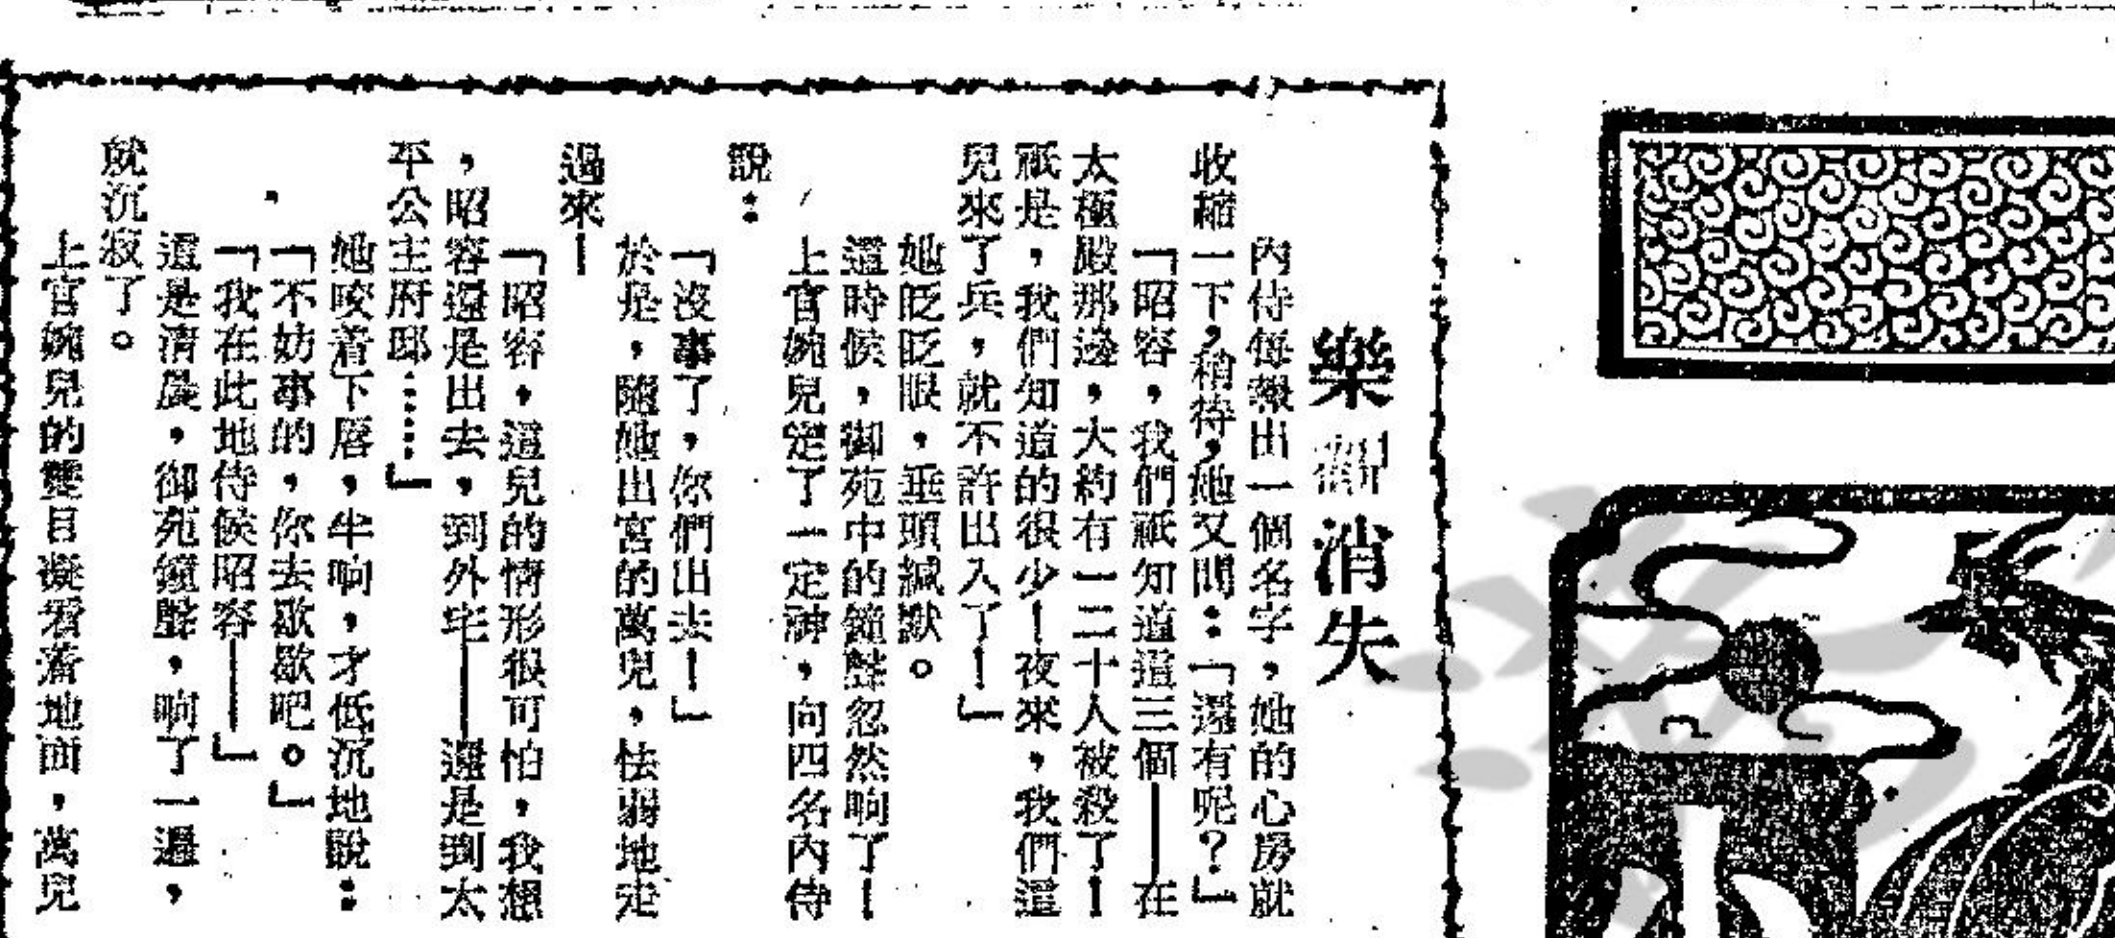 樂觀消失
內侍每報出一個名字，她的心房就
收縮一下，稍待，她又問：「還有呢？」
「昭容，我們祇知道這三個——在
太極殿那邊，大約有一二十人被殺了！
祇是，我們知道的很少！夜來，我們這
兒來了兵，就不許出入了！」
她眨眨眼，垂頭緘默。
這時候，御苑中的鐘聲忽然响了！
上官婉兒定了一定神，向四名內侍
說：
「沒事了，你們出去！」
於是，隨她出宮的萬兒，怯弱地走
過來！
「昭容，這兒的情形很可怕，我想
，昭容還是出去，到外宅——還是到太
平公主府邸……」
她咬着下唇，半响，才低沉地說：
「不妨事的，你去歇歇吧。」
「我在此地侍候昭容——」
這是清晨，御苑鐘聲，响了一遍，
就沉寂了。
上官婉兒的雙目凝看着地面，萬兒